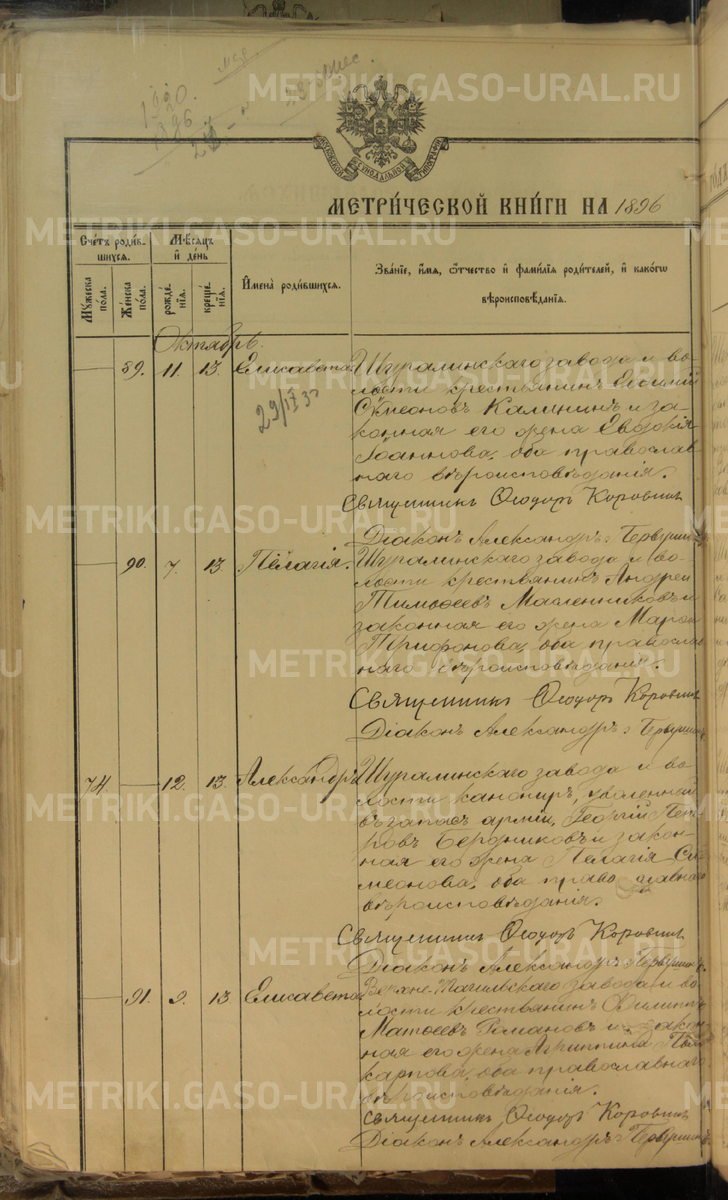 METRIKI.GASO-URAL.RU
1896
МЕТРИ́ЧЕСКОЙ КНИ́ГИ НА 1896
Сче́тъ роди́в-
шихся.
Мѣ́сяцъ
и҆ де́нь
И҆мена̀ роди́вшихся.
Зва́нїе, и҆́мѧ, ѻ҆́тчество и҆ фами́лїѧ роди́телей, и҆ како́гѡ
вѣроисповѣ́данїѧ.
Мꙋ́жеска
по́ла.
Же́нска
по́ла.
рожде́-
нїѧ.
креще́-
нїѧ.
Октябрь.
89. 11. 13. Елисавета
29/IX 35
Шуралинскаго завода и во-
лости крестьянинъ
Симеоновъ Калининъ и за-
конная его жена Евдокія
Іоаннова, оба православ-
наго вѣроисповѣданія.
Священникъ Ѳеодоръ Коровинъ
Діаконъ Александръ Первушинъ
90. 7. 13 Пелагія.
Шуралинскаго завода и во-
лости крестьянинъ Андрей
Тимофеевъ Масленниковъ и
законная его жена Марѳа
Трифонова, оба православ-
наго вѣроисповѣданія.
Священникъ Ѳеодоръ Коровинъ
Діаконъ Александръ Первушинъ
74 12. 13. Александръ
Шуралинскаго завода и во-
лости канониръ, уволенный
въ запасъ арміи, Георгій Пет-
ровъ Бердниковъ и закон-
ная его жена Пелагія Си-
меонова, оба православнаго
вѣроисповѣданія.
Священникъ Ѳеодоръ Коровинъ
Діаконъ Александръ Первушинъ
91. 9. 13 Елисавета
Верхне-Тагильскаго завода и во-
лости крестьянинъ Филиппъ
Матѳеевъ Романовъ и закон-
ная его жена Агриппина Поли-
карпова, оба православнаго
вѣроисповѣданія.
Священникъ Ѳеодоръ Коровинъ
Діаконъ Александръ Первушинъ